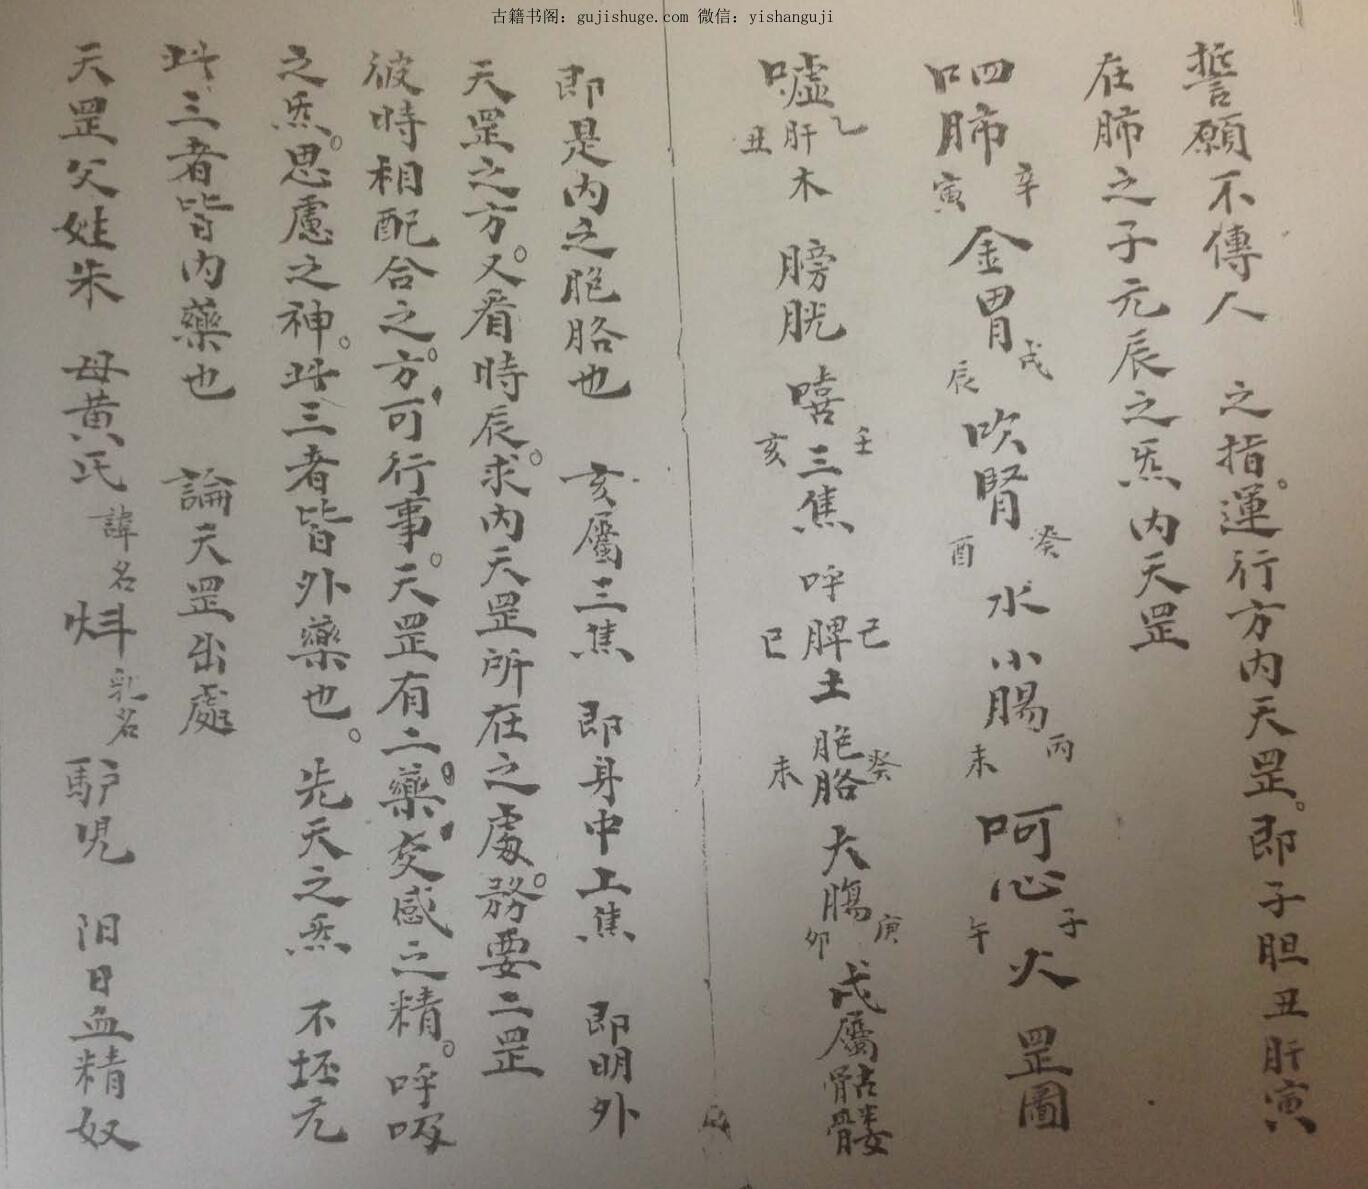 古籍书阁：gujishuge.com 微信：yishanguji
誓願不傳人　之指。運行方内天罡。即子胆丑肝寅
在肺之子元辰之炁内天罡
呬肺辛寅金胃戌辰吹腎癸酉水小腸丙未呵心子午火　罡圖
嘘肝乙丑木　膀胱　嘻三焦壬亥　呼脾己巳土　胞胳癸未　大腸庚卯　戌屬骷髏
即是内之胞胳也　亥屬三焦　即身中上焦　即明外
天罡之方。又看時辰。求内天罡所在之處。務要二罡
彼時相配合之方。可行事。天罡有二藥。交感之精。呼吸
之炁。思慮之神。此三者皆外藥也。先天之炁　不坯元
此三者皆内藥也　論天罡出處
天罡父姓朱　母黄氏　諱名　乳名　馿児　阳日血精奴